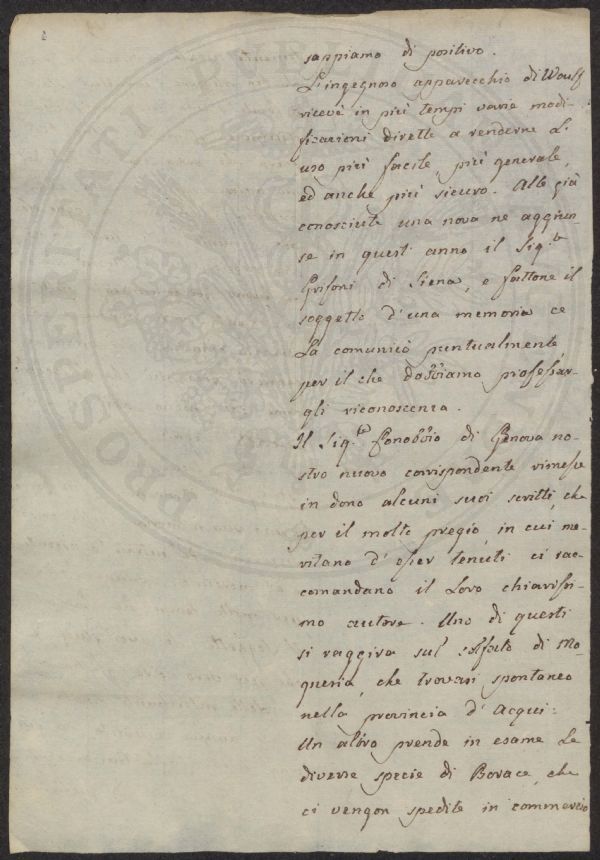 sappiamo di positivo.
L'ingegnoso apparecchio di Woulf
ricevè in più tempi varie modi-
ficazioni dirette a renderne l'
uso più facile, più generale,
ed anche più sicuro. Alle già
conosciute una nova ne aggiun-
se in quest'anno il Sig.re
Grifoni di Siena, e fattone il
soggetto d'una memoria ce
la comunicò puntualmente,
per il che dobbiamo professar-
gli riconoscenza.
Il Sig.re di Genova no-
stro nuovo corrispondente rimesse
in dono alcuni suoi scritti, che
per il molto pregio, in cui me-
ritano d'esser tenuti ci rac-
comandano il loro chiarissi-
mo autore. Uno di questi
si raggira sul solfato di Ma-
gnesia, che trovasi spontaneo
nella provincia d'Acqui:
Un altro prende in esame le
diverse specie di Borace, che
ci vengon spedite in commercio